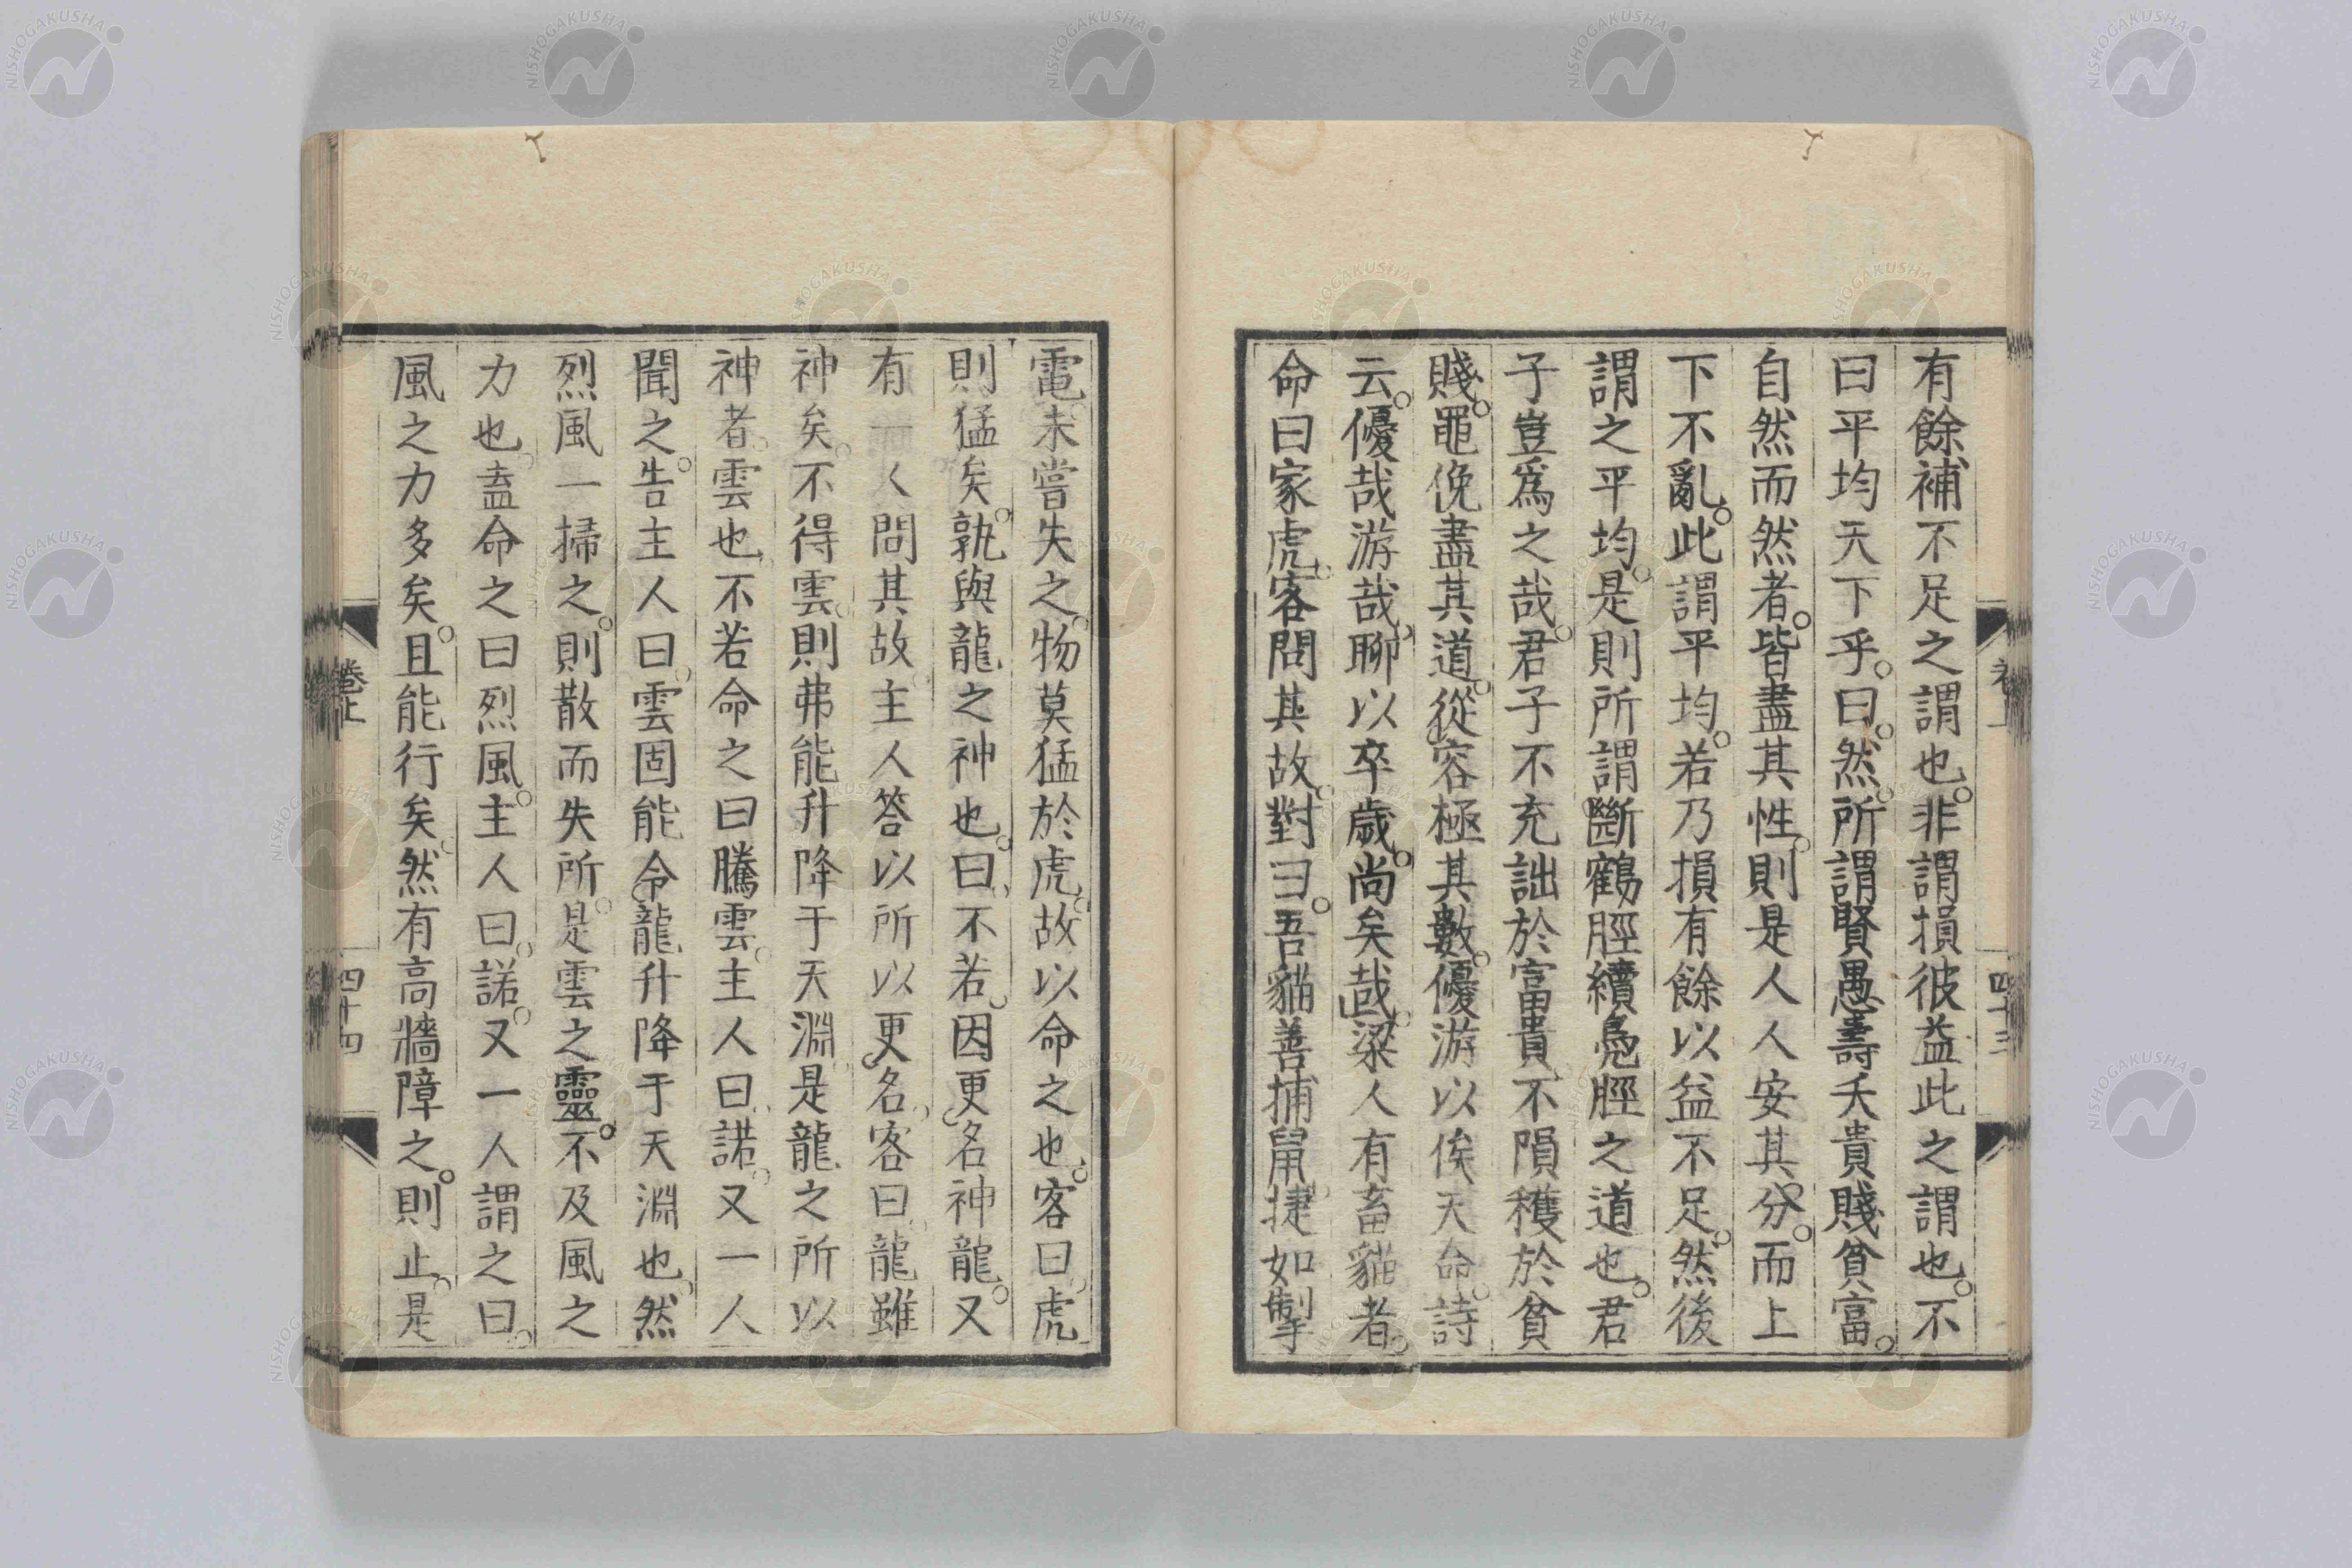 有餘補不足之謂也。非謂損彼益此之謂也。不
曰平均天下乎。曰。然。所謂賢愚壽夭貴賤貧富。
自然而然者。皆盡其性。則是人人安其分。而上
下不亂。此謂平均。若乃損有餘以益不足。然後
謂之平均。是則所謂斷鶴脛續鳧脛之道也。君
子豈爲之哉。君子不充詘於富貴不隕穫於貧
賤。黽俛盡其道。從容極其數。優游以俟天命。詩
云。優哉游哉。聊以卒歲。尚矣哉。梁人有畜貓者。
命曰家虎。客問其故。對曰。吾貓善捕鼠。捷如掣
電。未嘗失之。物莫猛於虎。故以命之也。客曰。虎
則猛矣。孰與龍之神也。曰。不若。因更名神龍。又
有一人問其故。主人答以所以更名。客曰。龍雖
神矣。不得雲。則弗能升降于天淵。是龍之所以
神者。雲也。不若命之曰騰雲。主人曰。諾。又一人
聞之。告主人曰。雲固能令龍升降于天淵也。然
烈風一掃之。則散而失所。是雲之靈。不及風之
力也。盍命之曰烈風。主人曰。諾。又一人謂之曰。
風之力多矣。且能行矣。然有高牆障之。則止。是
卷上
四十四
四十三